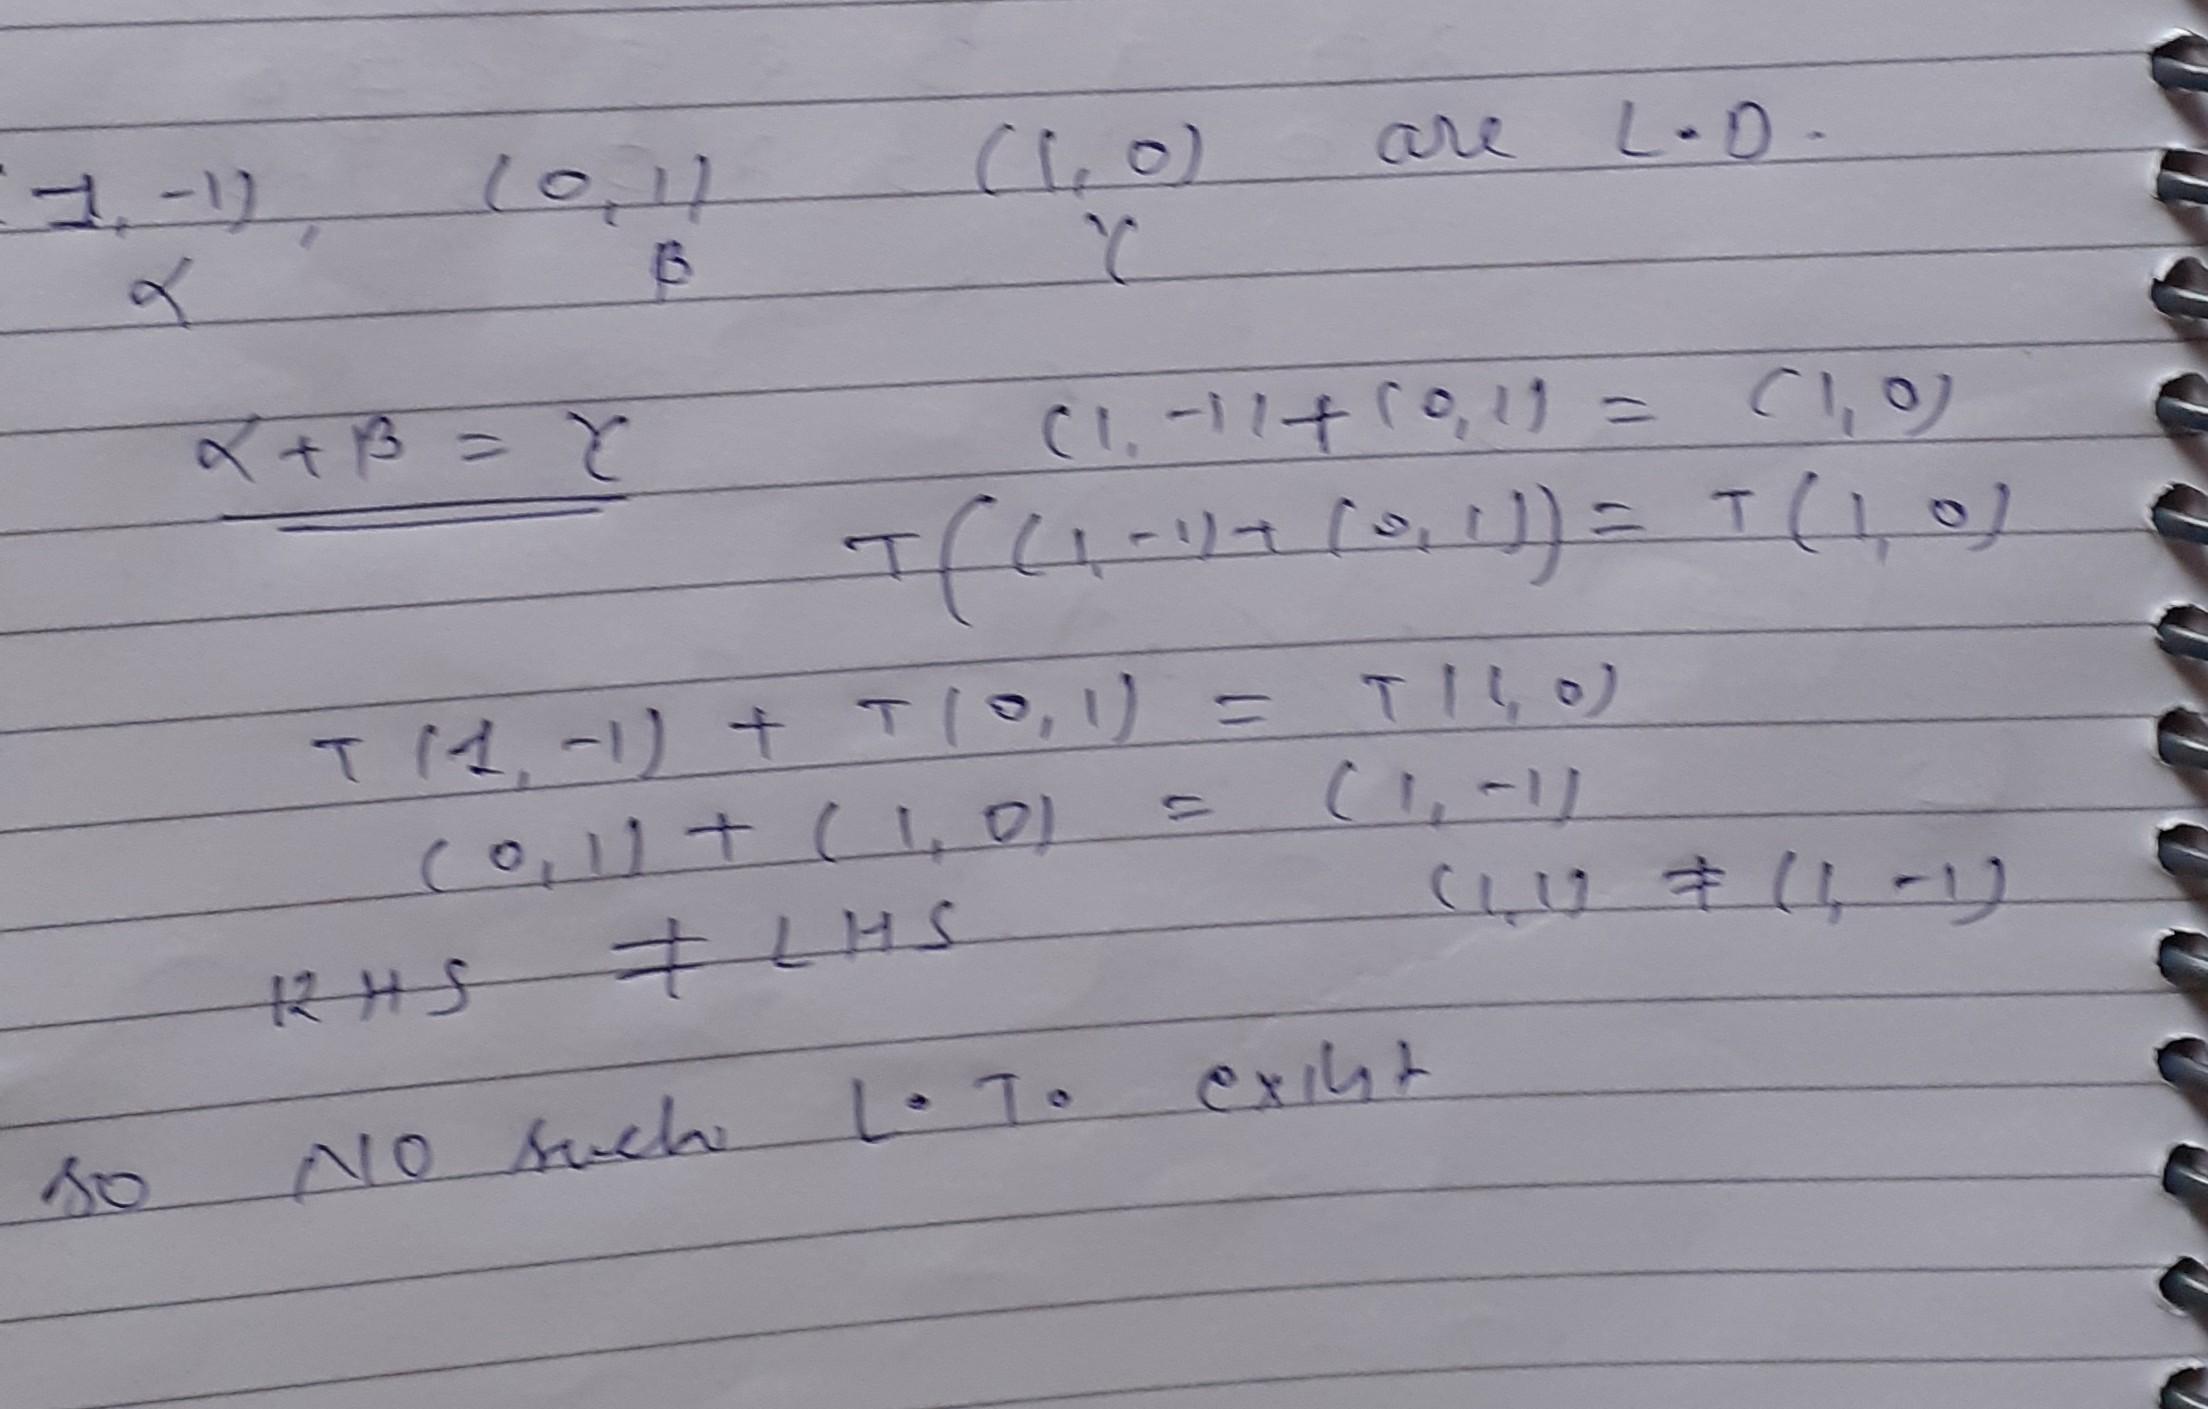 (1, -1), (0, 1) (1, 0) are L.D.
α β γ
α + β = γ (1, -1) + (0, 1) = (1, 0)
T((1, -1) + (0, 1)) = T(1, 0)
T(1, -1) + T(0, 1) = T(1, 0)
(0, 1) + (1, 0) = (1, -1)
(1, 1) ≠ (1, -1)
RHS ≠ LHS
so NO such L.T. exist